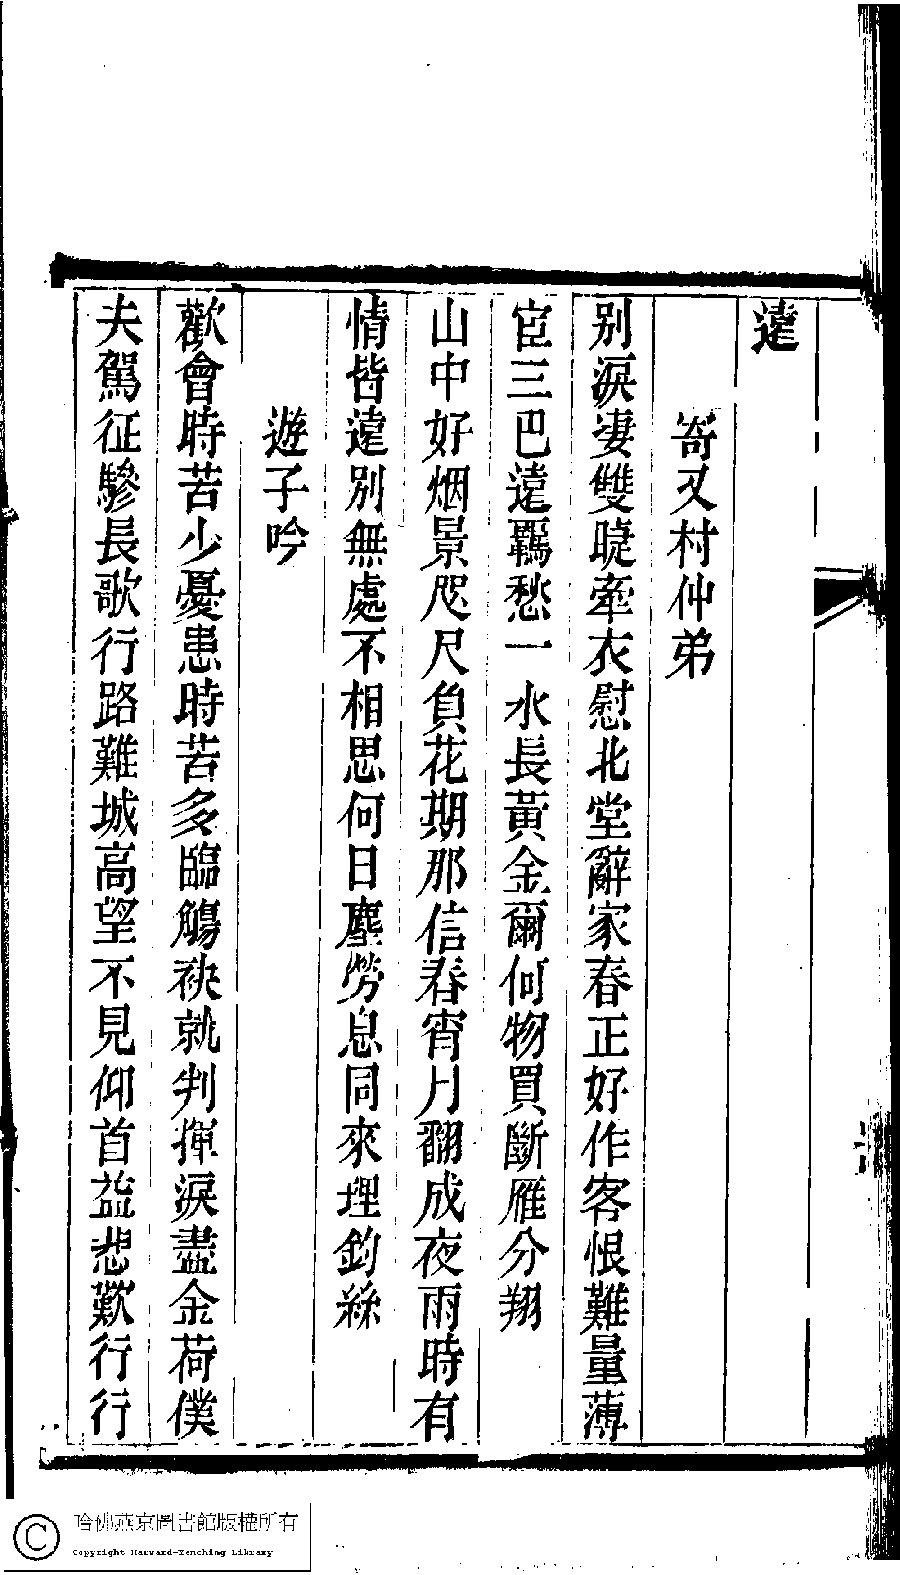 遠
寄又村仲弟
別淚凄雙睫牽衣慰北堂辭家春正好作客恨難量薄
宦三巴遠羈愁一水長黃金爾何物買斷雁分翔
山中好烟景咫尺負花期那信春宵月翻成夜雨時有
情皆遠別無處不相思何日塵勞息同來埋釣絲
遊子吟
歡會時苦少憂患時苦多臨觴袂就判揮淚盡金荷僕
夫駕征驂長歌行路難城高望不見仰首益悲歎行行
哈佛燕京圖書館版權所有
Copyright Harvard-Yenching Library